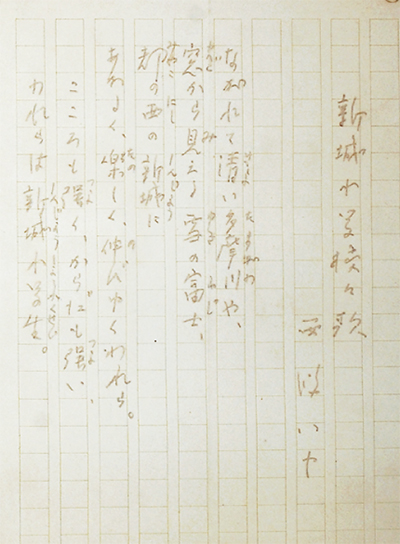 新城小学校々歌
西條八十
ながれて清い多摩川や、
窓から見える雪の富士、
都の西の新城に
あかるく、楽しく、伸びゆくわれら。
こころも強く、からだも強い、
われらは新城小学生。